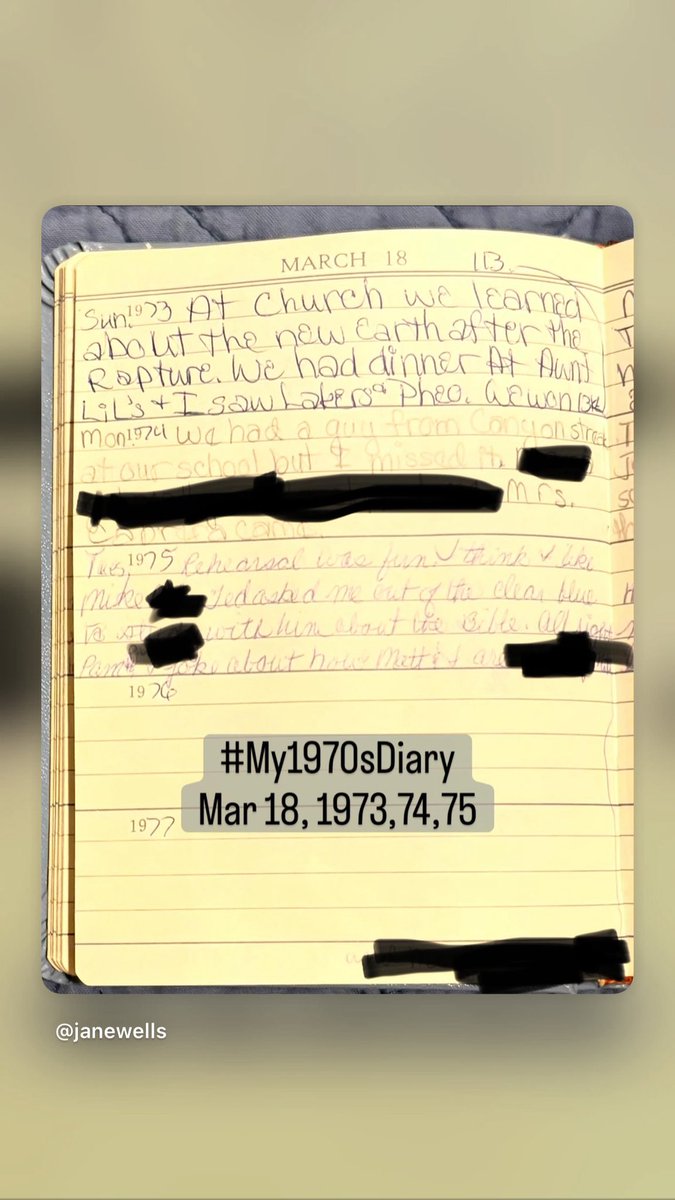 MARCH 18
113.
Sun. 1973 At Church we learned
about the new Earth after the
Rapture. We had dinner At Aunt
Lil's + I saw Lakers Pheo. We won
Mon. 1974 We had a guy from Canyon
at our school but I missed it.
Mrs.
came.
Tues. 1975 Rehearsal was fun. I think I like
Mike asked me out of the clear blue
to with him about the Bible. All right
Pam I joke about how Matt & I are
1976
#My1970sDiary
Mar 18, 1973,74,75
1977
@janewells